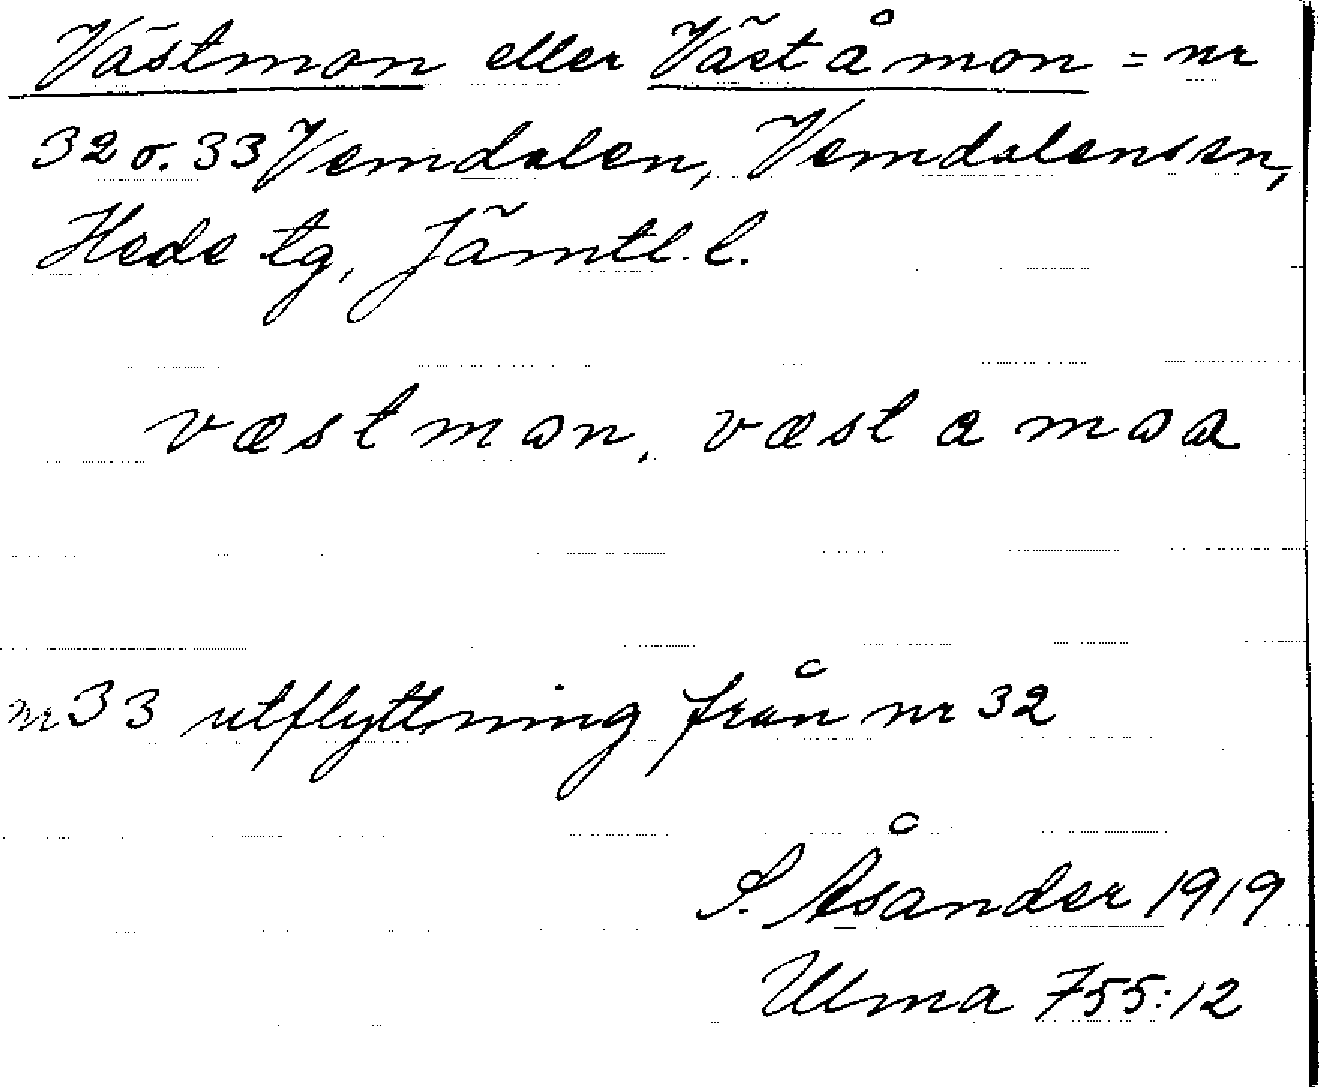 Västmon eller Väståmon = nr
32 o. 33 Vemdalen, Vemdalens sn,
Hede tg, Jämtl. l.
væstmɷn, væst a mɷa
nr 33 utflyttning från nr 32
S. Åsander 1919
Ulma 755:12